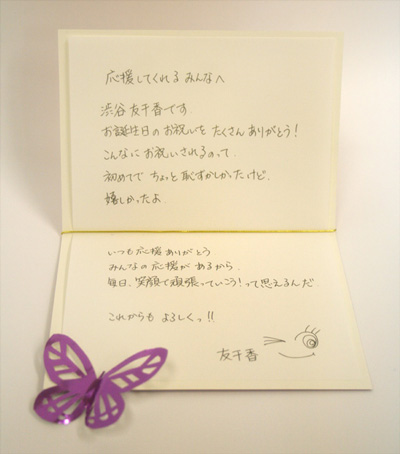 応援してくれる みんなへ
渋谷 友千香です.
お誕生日の お祝いを たくさん ありがとう!
こんなに お祝いされるのって.
初めてで ちょっと 恥ずかしかったけど.
嬉しかったよ.
いつも 応援 ありがとう
みんなの 応援が あるから.
毎日、笑顔で 頑張っていこう!って 思えるんだ.
これからも よろしくっ!!
友千香